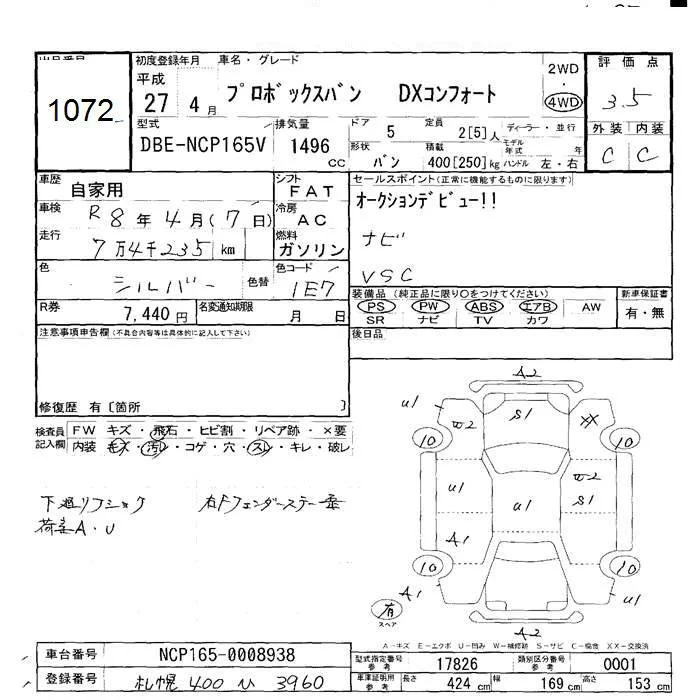 初度登録年月 車名・グレード
1072
平成 27 4月
プロボックスバン DXコンフォート
2WD
4WD
評価点
3.5
型式 排気量 ドア 5 定員 2[5]人 ディーラー・並行
外装 内装
DBE-NCP165V 1496 CC
形状 バン 積載 400[250]kg
モデル年式 年
ハンドル 左・右
C C
車歴 自家用 シフト FAT
セールスポイント(正常に機能するものに限ります)
車検 R 8年 4月(7日) 冷房 AC
オークションデビュー!!
走行 7万4千235 km 燃料 ガソリン
ナビ
色 シルバー 色替 色コード 1E7
VSC
R券 7,440円 名変通知期限 月 日
装備品(純正品に限り○をつけてください) 新車保証書
PS PW ABS エアB AW 有・無
SR ナビ TV カワ
注意事項申告欄(不具合内容等は具体的に記入して下さい)
後日品
修復歴 有〔箇所 〕
検査員記入欄 FW キズ・飛石・ヒビ割・リペア跡・×要
内装 キズ・汚レ・コゲ・穴・スレ・キレ・破レ
A2
u1 S1 XX
W2
10 10
W2
u1 u1 S1
A1
10 10
A1 u1
有
スペア
A2
荷室A・U
右Fフェンダーステー
A-キズ E-エクボ U-凹み W-補修跡 S-サビ C-腐食 XX-交換済
車台番号 NCP165-0008938
型式指定番号参考 17826 類別区分番号参考 0001
登録番号 札幌 400 ひ 3960
車庫証明用参考 長さ 424 cm 幅 169 cm 高さ 153 cm